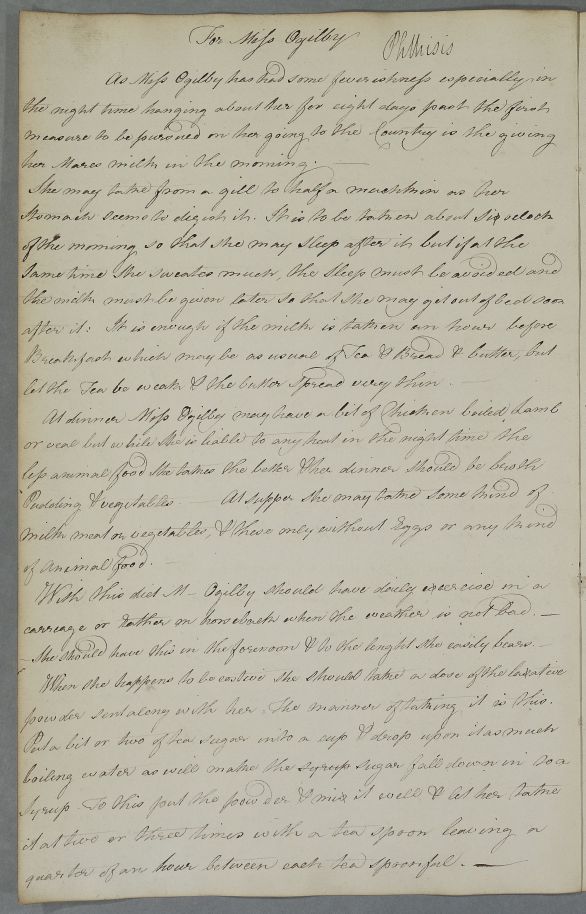 For Miss Ogilby
Phthisis
As Miss Ogilby has had some feverishness especially in
the night time hanging about her for eight days past the first
measure to be pursued on her going to the Country is the giving
her Mares milk in the morning. —
She may take from a gill to half a muchkin as her
stomach seems to digest it. It is to be taken about six o clock
of the morning so that she may sleep after it but if at the
same time she sweates much, the sleep must be avoided and
the milk must be given later so that she may get out of bed soon
after it: It is enough if the milk is taken an hour before
Breakfast which may be as usual of Tea & Bread & butter, but
let the Tea be weak & the butter spread very thin. —
At dinner Miss Ogilby may have a bit of Chicken boiled Lamb
or veal but while she is liable to any heat in the night time the
less animal food she takes the better & her dinner should be broth
Pudding & vegetables — At supper she may take some kind of
milk meat or vegetables, & these only without Eggs or any kind
of animal food.
With this diet M— Ogilby should have daily exercise in a
carreage or rather on horseback when the weather is not bad. —
— she should have this in the forenoon & to the lenght she easily bears. —
When she happens to be costive she should take a dose of the laxative
powder sent along with her. The manner of taking it is this.
Put a bit or two of tea sugar into a cup & drop upon it as much
boiling water as will make the syrup sugar fall down in to a
Syrup. To this put the powder & mix it well & let her take
it at two or three times with a tea spoon leaving a
quarter of an hour between each tea spoonful. —